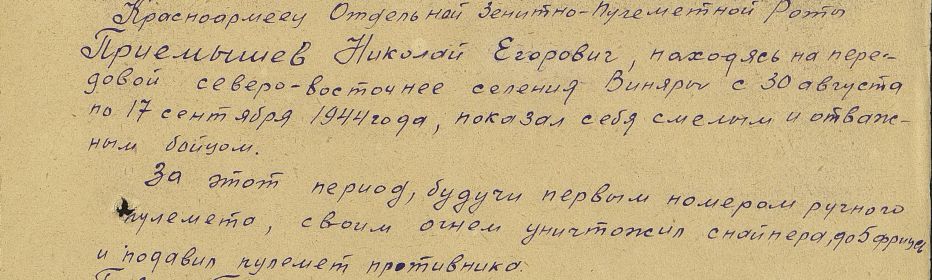 Красноармеец Отдельной Зенитно-Пулеметной Роты
Приемышев Николай Егорович, находясь на пере-
довой северо-восточнее селения Виняры с 30 августа
по 17 сентября 1944 года, показал себя смелым и отваж-
ным бойцом.
За этот период, будучи первым номером ручного
пулемета, своим огнем уничтожил снайпера, до 5 фрицев
и подавил пулемет противника.